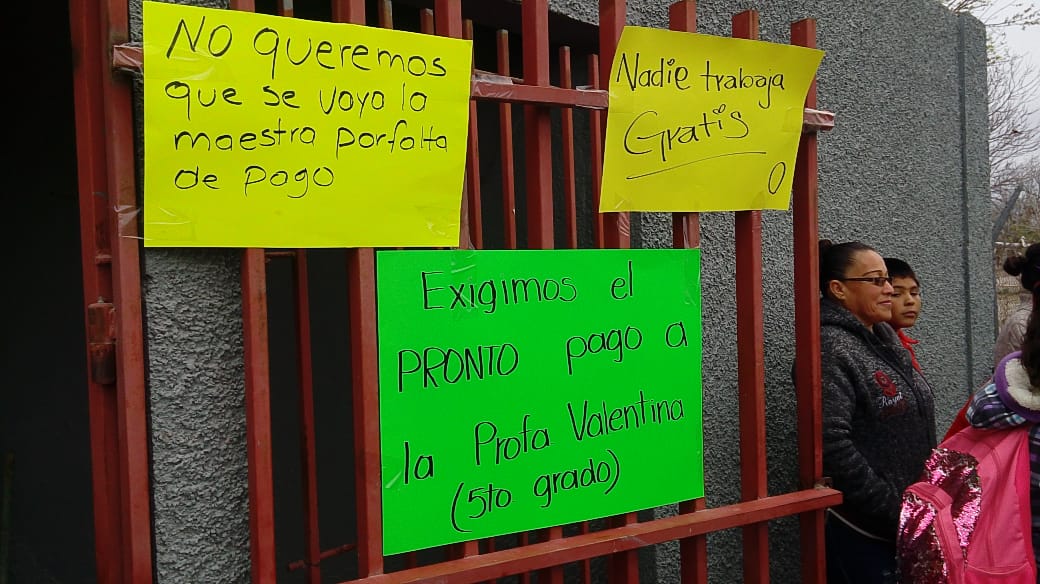 NO queremos
que se voya la
maestra porfalta
de pago
Nadie trabaja
Gratis
0
Exigimos el
PRONTO pago a
la Profa Valentina
(5to grado)
Royal